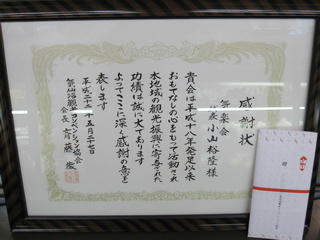 感謝状
笑楽会
会長 小山裕隆 様
貴会は平成十八年発足以来
おもてなしの心をもって活動され
本地域の観光振興に寄与された
功績は誠に大であります
よってここに深く感謝の意を
表します
平成二十二年五月二十七日
気仙沼観光コンベンション協会
会長